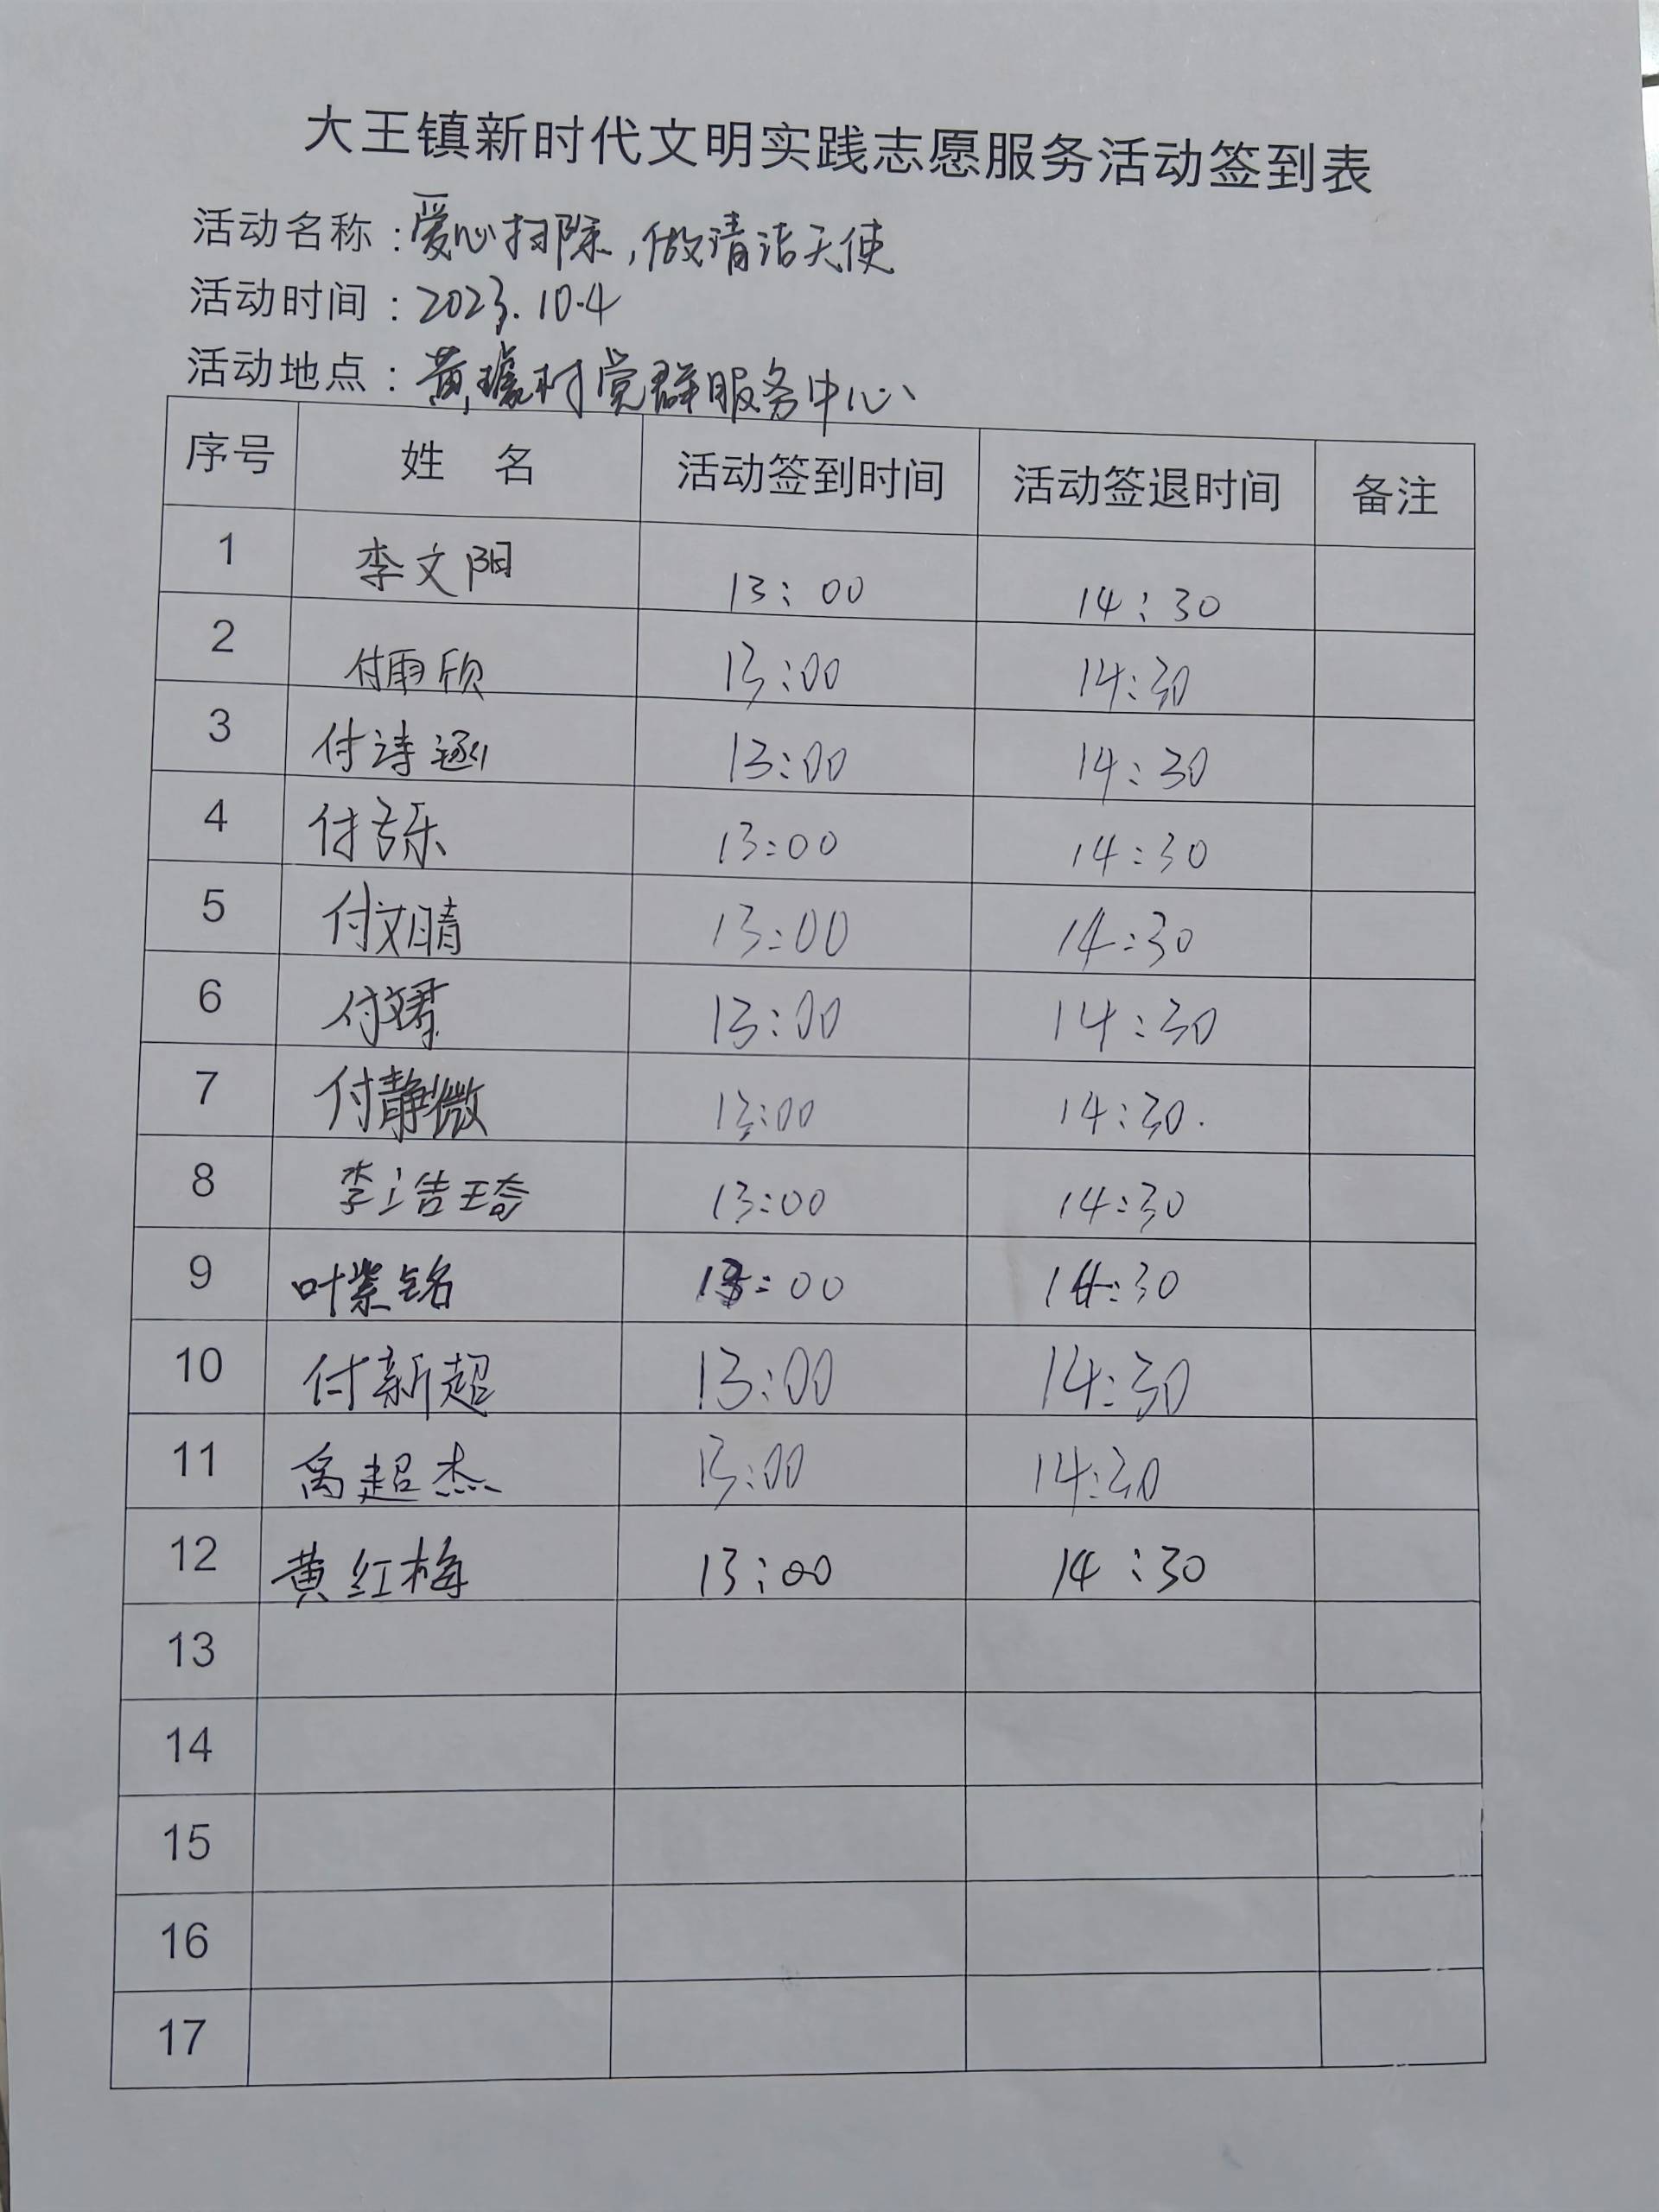 大王镇新时代文明实践志愿服务活动签到表
活动名称：爱心扫除，做清洁天使
活动时间：2023.10.4
活动地点：黄璩村党群服务中心
序号 姓 名 活动签到时间 活动签退时间 备注
1 李文阳 13:00 14:30
2 付雨欣 13:00 14:30
3 付诗涵 13:00 14:30
4 付 乐 13:00 14:30
5 付文晴 13:00 14:30
6 付 13:00 14:30
7 付静微 13:00 14:30.
8 李浩琦 13:00 14:30
9 叶紫铭 13:00 14:30
10 付新超 13:00 14:30
11 禹超杰 13:00 14:30
12 黄红梅 13:00 14:30
13
14
15
16
17